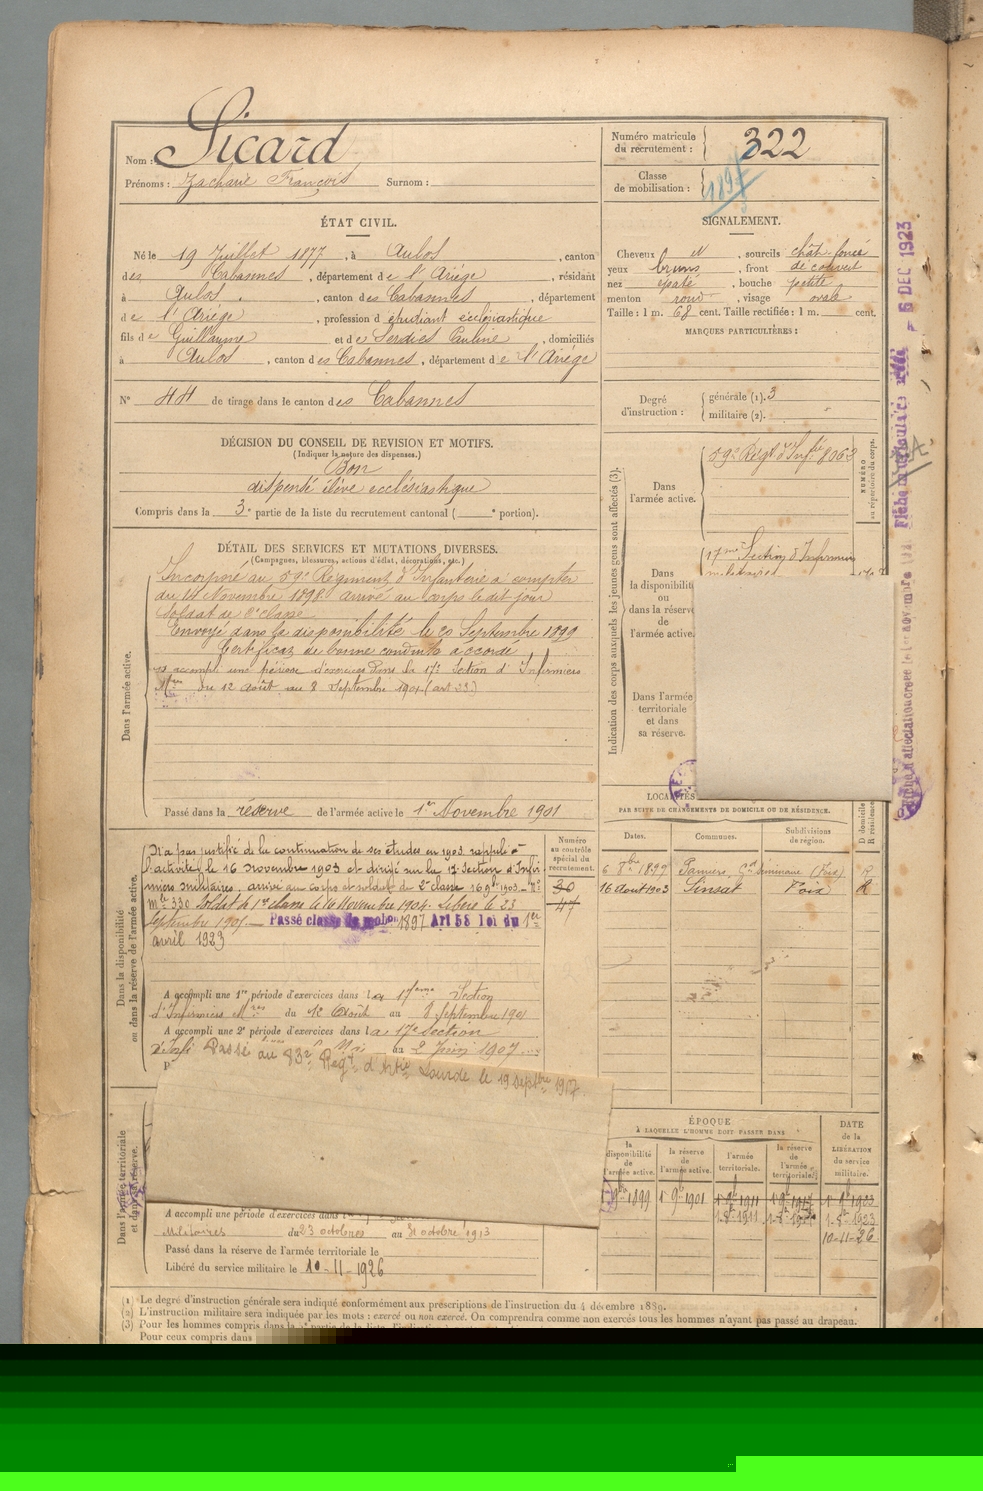 Nom : Sicard
Prénoms : Zacharie François Surnom :
Numéro matricule du recrutement : 322
Classe de mobilisation : 1897
ÉTAT CIVIL.
Né le 19 Juillet 1877, à Aulos, canton
des Cabannes, département de l'Ariège, résidant
à Aulos, canton des Cabannes, département
de l'Ariège, profession d'étudiant ecclésiastique
fils de Guillaume et de Serdies Pauline, domiciliés
à Aulos, canton des Cabannes, département de l'Ariège
N° 44 de tirage dans le canton des Cabannes
SIGNALEMENT.
Cheveux et, sourcils chât. foncé
yeux bruns, front découvert
nez épaté, bouche petite
menton rond, visage ovale
Taille : 1 m. 68 cent. Taille rectifiée : 1 m. cent.
MARQUES PARTICULIÈRES :
Degré d'instruction : générale (1). 3
militaire (2). "
DÉCISION DU CONSEIL DE REVISION ET MOTIFS.
(Indiquer la nature des dispenses.)
Bon
dispensé élève ecclésiastique
Compris dans la 3e partie de la liste du recrutement cantonal ( e portion).
Indication des corps auxquels les jeunes gens sont affectés (3).
Dans l'armée active.
59e Régt d'Infie 8063
NUMÉRO au répertoire du corps.
Dans la disponibilité ou dans la réserve de l'armée active.
17me Section d'Infirmiers
militaires
Dans l'armée territoriale et dans sa réserve.
DÉTAIL DES SERVICES ET MUTATIONS DIVERSES.
(Campagnes, blessures, actions d'éclat, décorations, etc.)
Dans l'armée active.
Incorporé au 59e Régiment d'Infanterie à compter
du 14 Novembre 1898 arrivé au corps le dit jour
soldat de 2e classe
Envoyé dans la disponibilité le 20 Septembre 1899
Certificat de bonne conduite accordé
a accompli une période d'exercices Dans la 17e Section d'Infirmiers
Mres du 12 août au 8 Septembre 1901 (art 23.)
Passé dans la réserve de l'armée active le 1er Novembre 1901
Dans la disponibilité ou dans la réserve de l'armée active.
N'a pas justifié de la continuation de ses études en 1903 rappelé à
l'activité le 16 novembre 1903 et dirigé sur la 17e Section d'Infir
miers militaires, arrivé au corps et soldat de 2e classe 16 9bre 1903 - No
Mle 330 Soldat de 1re classe le 10 Novembre 1904. Libéré le 23
Septembre 1905 Passé classe de mobon 1897 Art 58 loi du 1er
avril 1923
Numéro au contrôle spécial du recrutement.
30
47
A accompli une 1re période d'exercices dans la 17eme Section
d'Infirmiers Mres du 12 Août au 8 Septembre 1901
A accompli une 2e période d'exercices dans la 17e section
au 2 Juin 1907
Passé au 83e Régt d'Artie Lourde le 19 septbre 1917.
LOCALITÉS
PAR SUITE DE CHANGEMENTS DE DOMICILE OU DE RÉSIDENCE.
Dates. Communes. Subdivisions de région. D domicile R résidence.
6 8bre 1899 Pamiers, Gd Séminaire (Foix) R
16 Août 1903 Sinsat Foix R
Dans l'armée territoriale et dans sa réserve.
A accompli une période d'exercices dans
Militaires du 23 octobre au 31 octobre 1913
Passé dans la réserve de l'armée territoriale le
Libéré du service militaire le 10-11-1926
ÉPOQUE
À LAQUELLE L'HOMME DOIT PASSER DANS
DATE de la LIBÉRATION du service militaire.
la disponibilité de l'armée active. la réserve de l'armée active. l'armée territoriale. la réserve de l'armée territoriale.
9bre 1899 1 9bre 1901 1 9bre 1911 1 9bre 1917 1 9bre 1923
1-8bre 1911 1-8bre 1-8bre 1923
10-11-26
(1) Le degré d'instruction générale sera indiqué conformément aux prescriptions de l'instruction du 4 décembre 1889.
(2) L'instruction militaire sera indiquée par les mots : exercé ou non exercé. On comprendra comme non exercés tous les hommes n'ayant pas passé au drapeau.
(3) Pour les hommes compris dans la
Pour ceux compris dans
5 DEC 1923